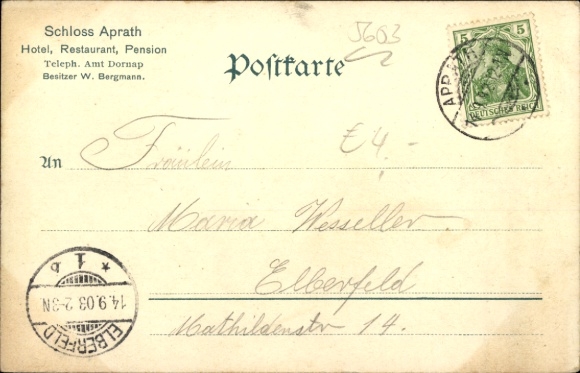 Schloss Aprath
Hotel, Restaurant, Pension
Teleph. Amt Dornap
Besitzer W. Bergmann.
5603
Postkarte
5 5
DEUTSCHES REICH
APRATH
An Fräulein
£4.-
Maria Wesseller.
Elberfeld
Mathildenstr 14.
* 1 b
14.9.03.2-3N
ELBERFELD